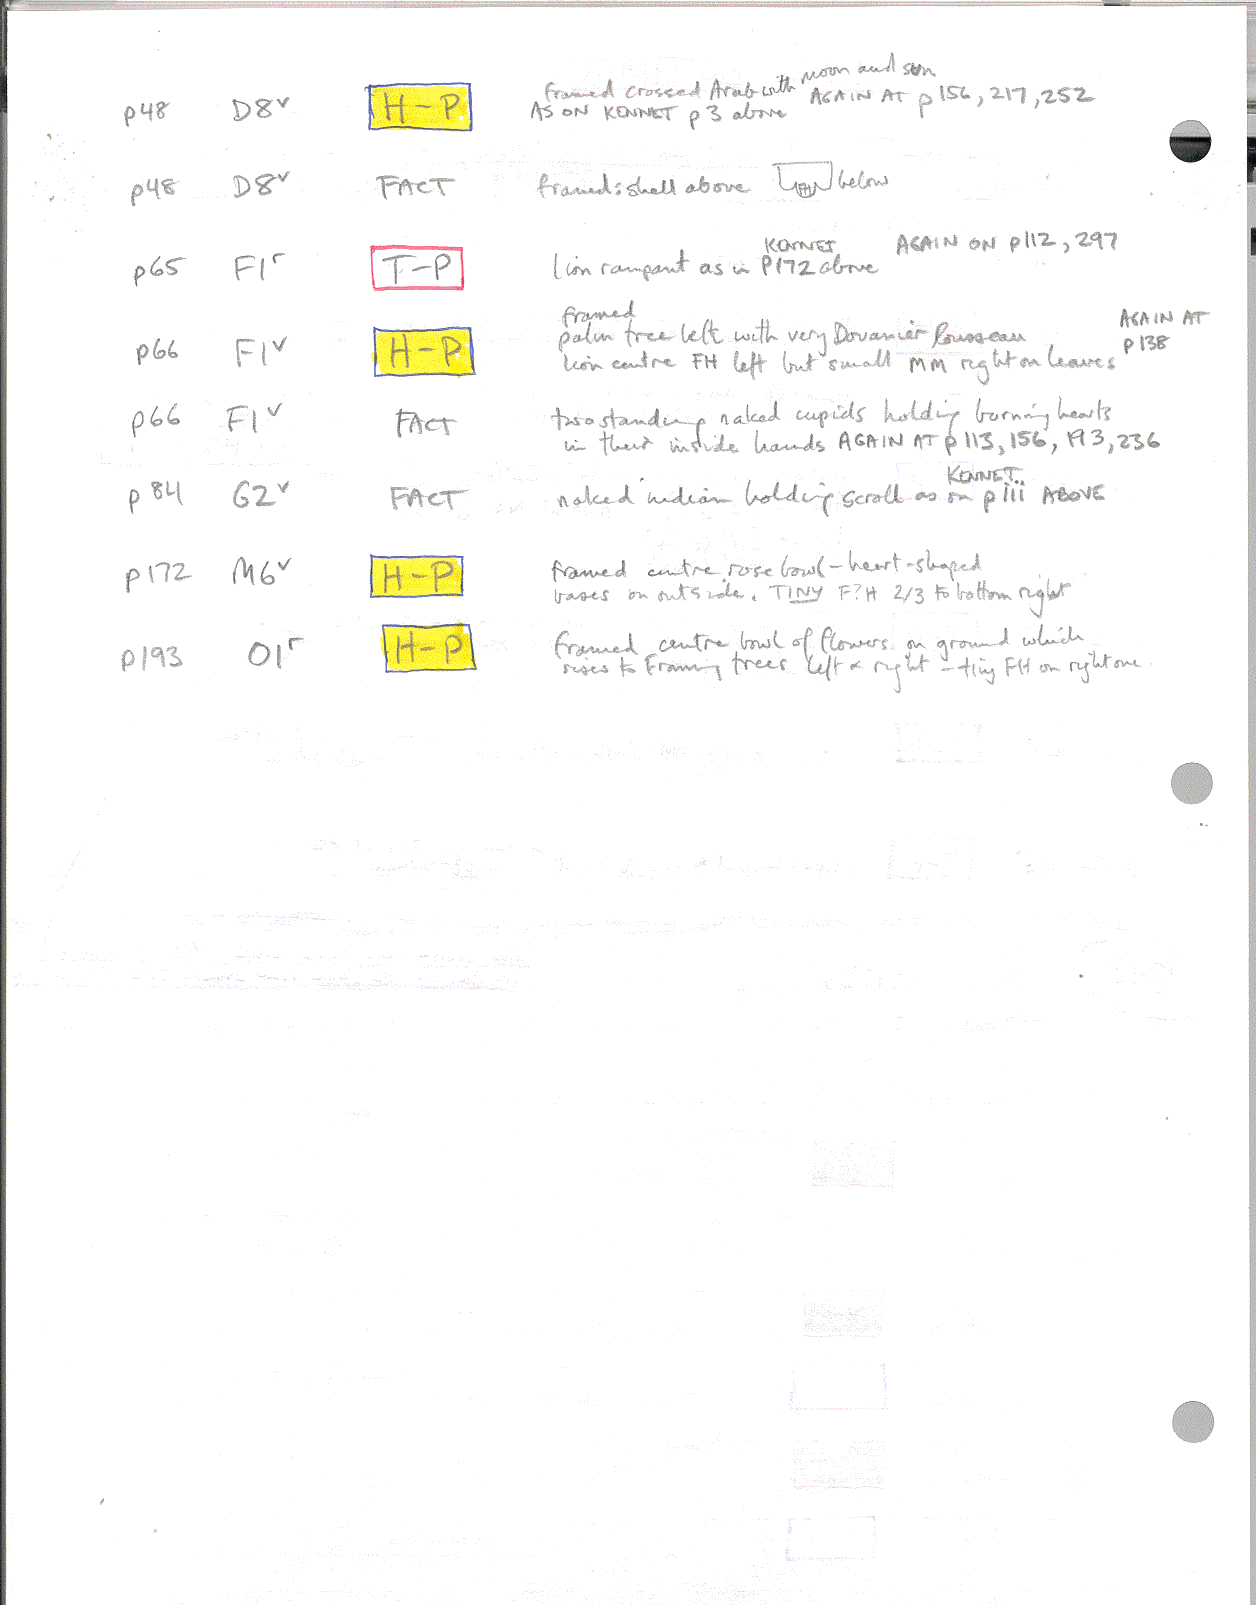 moon and sun
p48 D8v H-P framed crossed Arab with AGAIN AT p156, 217, 252
AS ON KENNET p3 above
p48 D8v FACT framed: shell above below
KENNET AGAIN ON p112, 297
p65 F1r T-P lion rampant as in P172 above
framed AGAIN AT
p66 F1v H-P palm tree left with very Douanier Rousseau p138
lion centre FH left but small MM right on leaves
p66 F1v FACT two standing naked cupids holding burning hearts
in their inside hands AGAIN AT p113, 156, 193, 236
KENNET
p84 G2v FACT naked indian holding scroll as on p111 ABOVE
p172 M6v H-P framed centre rose bowl - heart-shaped
bases on outside. TINY F?H 2/3 to bottom right
p193 O1r H-P framed centre bowl of flowers on ground which
rises to framing trees left & right - tiny FH on right one